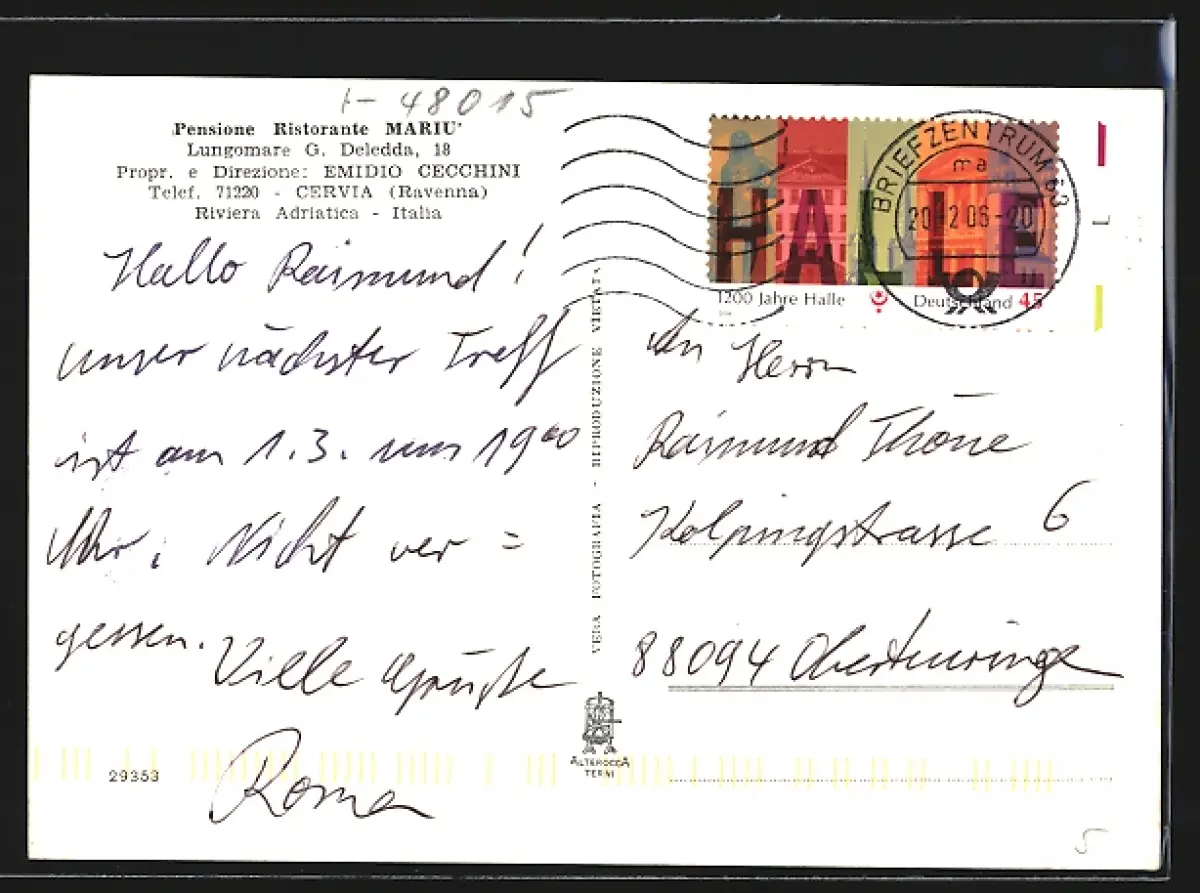 I-48015
Pensione Ristorante MARIU'
Lungomare G. Deledda, 18
Propr. e Direzione: EMIDIO CECCHINI
Telef. 71220 - CERVIA (Ravenna)
Riviera Adriatica - Italia
Hallo Raimund!
unser nächster Treff
ist am 1.3. um 19⁰⁰
Uhr. Nicht ver=
gessen.
Viele Grüße
Roman
29353
VERA FOTOGRAFIA - RIPRODUZIONE VIETATA
ALTEROCCA
TERNI
HALLE
1200 Jahre Halle
Deutschland 45
BRIEFZENTRUM 63
ma
1
An Herrn
Raimund Thöne
Kolpingstrasse 6
88094 Oberteuringen
5